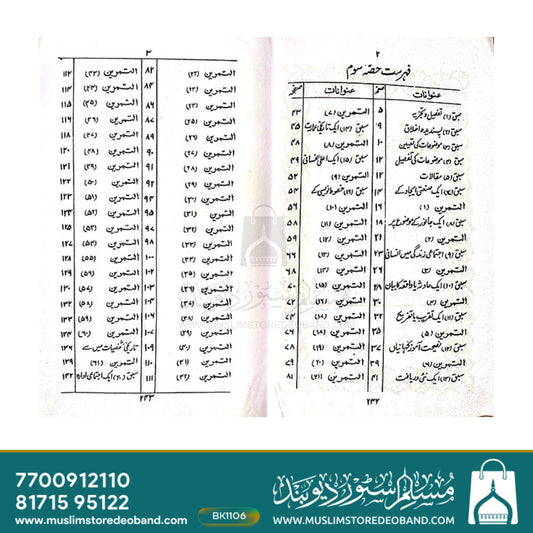 ۲
فہرست حصّہ سوم
عنوانات صفحہ عنوانات صفحہ
سبق (۱) تفصیل و تجزیہ ۵ التمرین (۷) ۴۳
سبق (۲) پسندیدہ اخلاق ۹ سبق (۱۴) ایک تاریخی عمارت ۴۵
سبق (۳) موضوعات کی تعیین ۱۰ التمرین (۸) ۴۸
سبق (۴) موضوعات کی تفصیل ۱۲ سبق (۱۵) ایک اعلیٰ انسانی ۴۹
سبق (۵) مقالات ۱۲ التمرین (۹) ۵۲
سبق (۶) ایک صنعتی ایجاد کے ۱۴ سبق (۱۶) ۵۴
التمرین (۱) ۱۶ التمرین (۱۰) ۵۶
سبق (۸) ایک جانور کے موضوع پر ۱۸ التمرین (۱۱) ۵۸
التمرین (۲) ۲۱ التمرین (۱۲) ۵۹
سبق (۹) اجتماعی زندگی میں انسانی ۲۳ التمرین
التمرین (۳) ۲۶ التمرین ۶۸
سبق ایک حادثہ یا واقعہ کا بیان ۲۸ التمرین ۷۰
التمرین (۴) ۳۰ التمرین ۷۲
سبق (۱۱) ایک تقریب یا تفریح ۳۲ التمرین ۷۴
التمرین (۵) ۳۵ التمرین (۱۸) ۷۶
سبق (۱۲) نصیحت آموز کہانیاں ۳۷ التمرین (۱۹) ۷۸
التمرین (۶) التمرین (۲۰) ۷۹
سبق (۱۳) ایک نئی دریافت ۴۱ التمرین (۲۱) ۸۱
۲۴۲
۳
التمرین (۲۲) ۸۲ التمرین (۴۳) ۱۱۲
التمرین (۲۳) ۸۴ التمرین (۴۴) ۱۱۴
التمرین (۲۴) ۸۶ التمرین (۴۵) ۱۱۵
التمرین (۲۵) ۸۷ التمرین (۴۶) ۱۱۶
التمرین (۲۶) ۸۹ التمرین (۴۷) ۱۱۷
التمرین (۲۷) ۸۹ التمرین (۴۸) ۱۱۸
التمرین (۲۸) ۹۰ التمرین ۱۲۰
التمرین (۲۹) ۹۱ التمرین ۱۲۱
التمرین (۳۰) ۹۲ التمرین (۵۰) ۱۲۲
التمرین (۳۱) ۹۴ التمرین (۵۱) ۱۲۳
التمرین ۹۵ التمرین (۵۲) ۱۲۴
التمرین ۹۷ التمرین (۵۳) ۱۲۵
التمرین ۹۸ التمرین
التمرین ۱۰۰ التمرین (۵۵) ۱۲۸
التمرین (۳۵) ۱۰۲ التمرین (۵۶) ۱۲۹
التمرین (۳۷) التمرین (۵۷) ۱۳۰
التمرین (۳۸) التمرین (۵۸)
التمرین (۳۹) ۱۰۶ التمرین (۵۹) ۱۳۳
التمرین (۴۰) ۱۰۷ التمرین (۶۰)
التمرین (۴۱) ۱۰۹ تاریخی شخصیات میں سے ۱۳۶
التمرین ۱۱۰ التمرین (۶۱) ۱۳۹
التمرین (۴۲) ۱۱۱ سبق ایک اجتماعی ادارہ ۱۴۲
۲۴۳
MUSLIMSTOREDEOBAND.COM
7700912110
81715 95122
www.muslimstoredeoband.com
BK1106
مسلم سٹور دیوبند
WWW.MUSLIMSTOREDEOBAND.COM